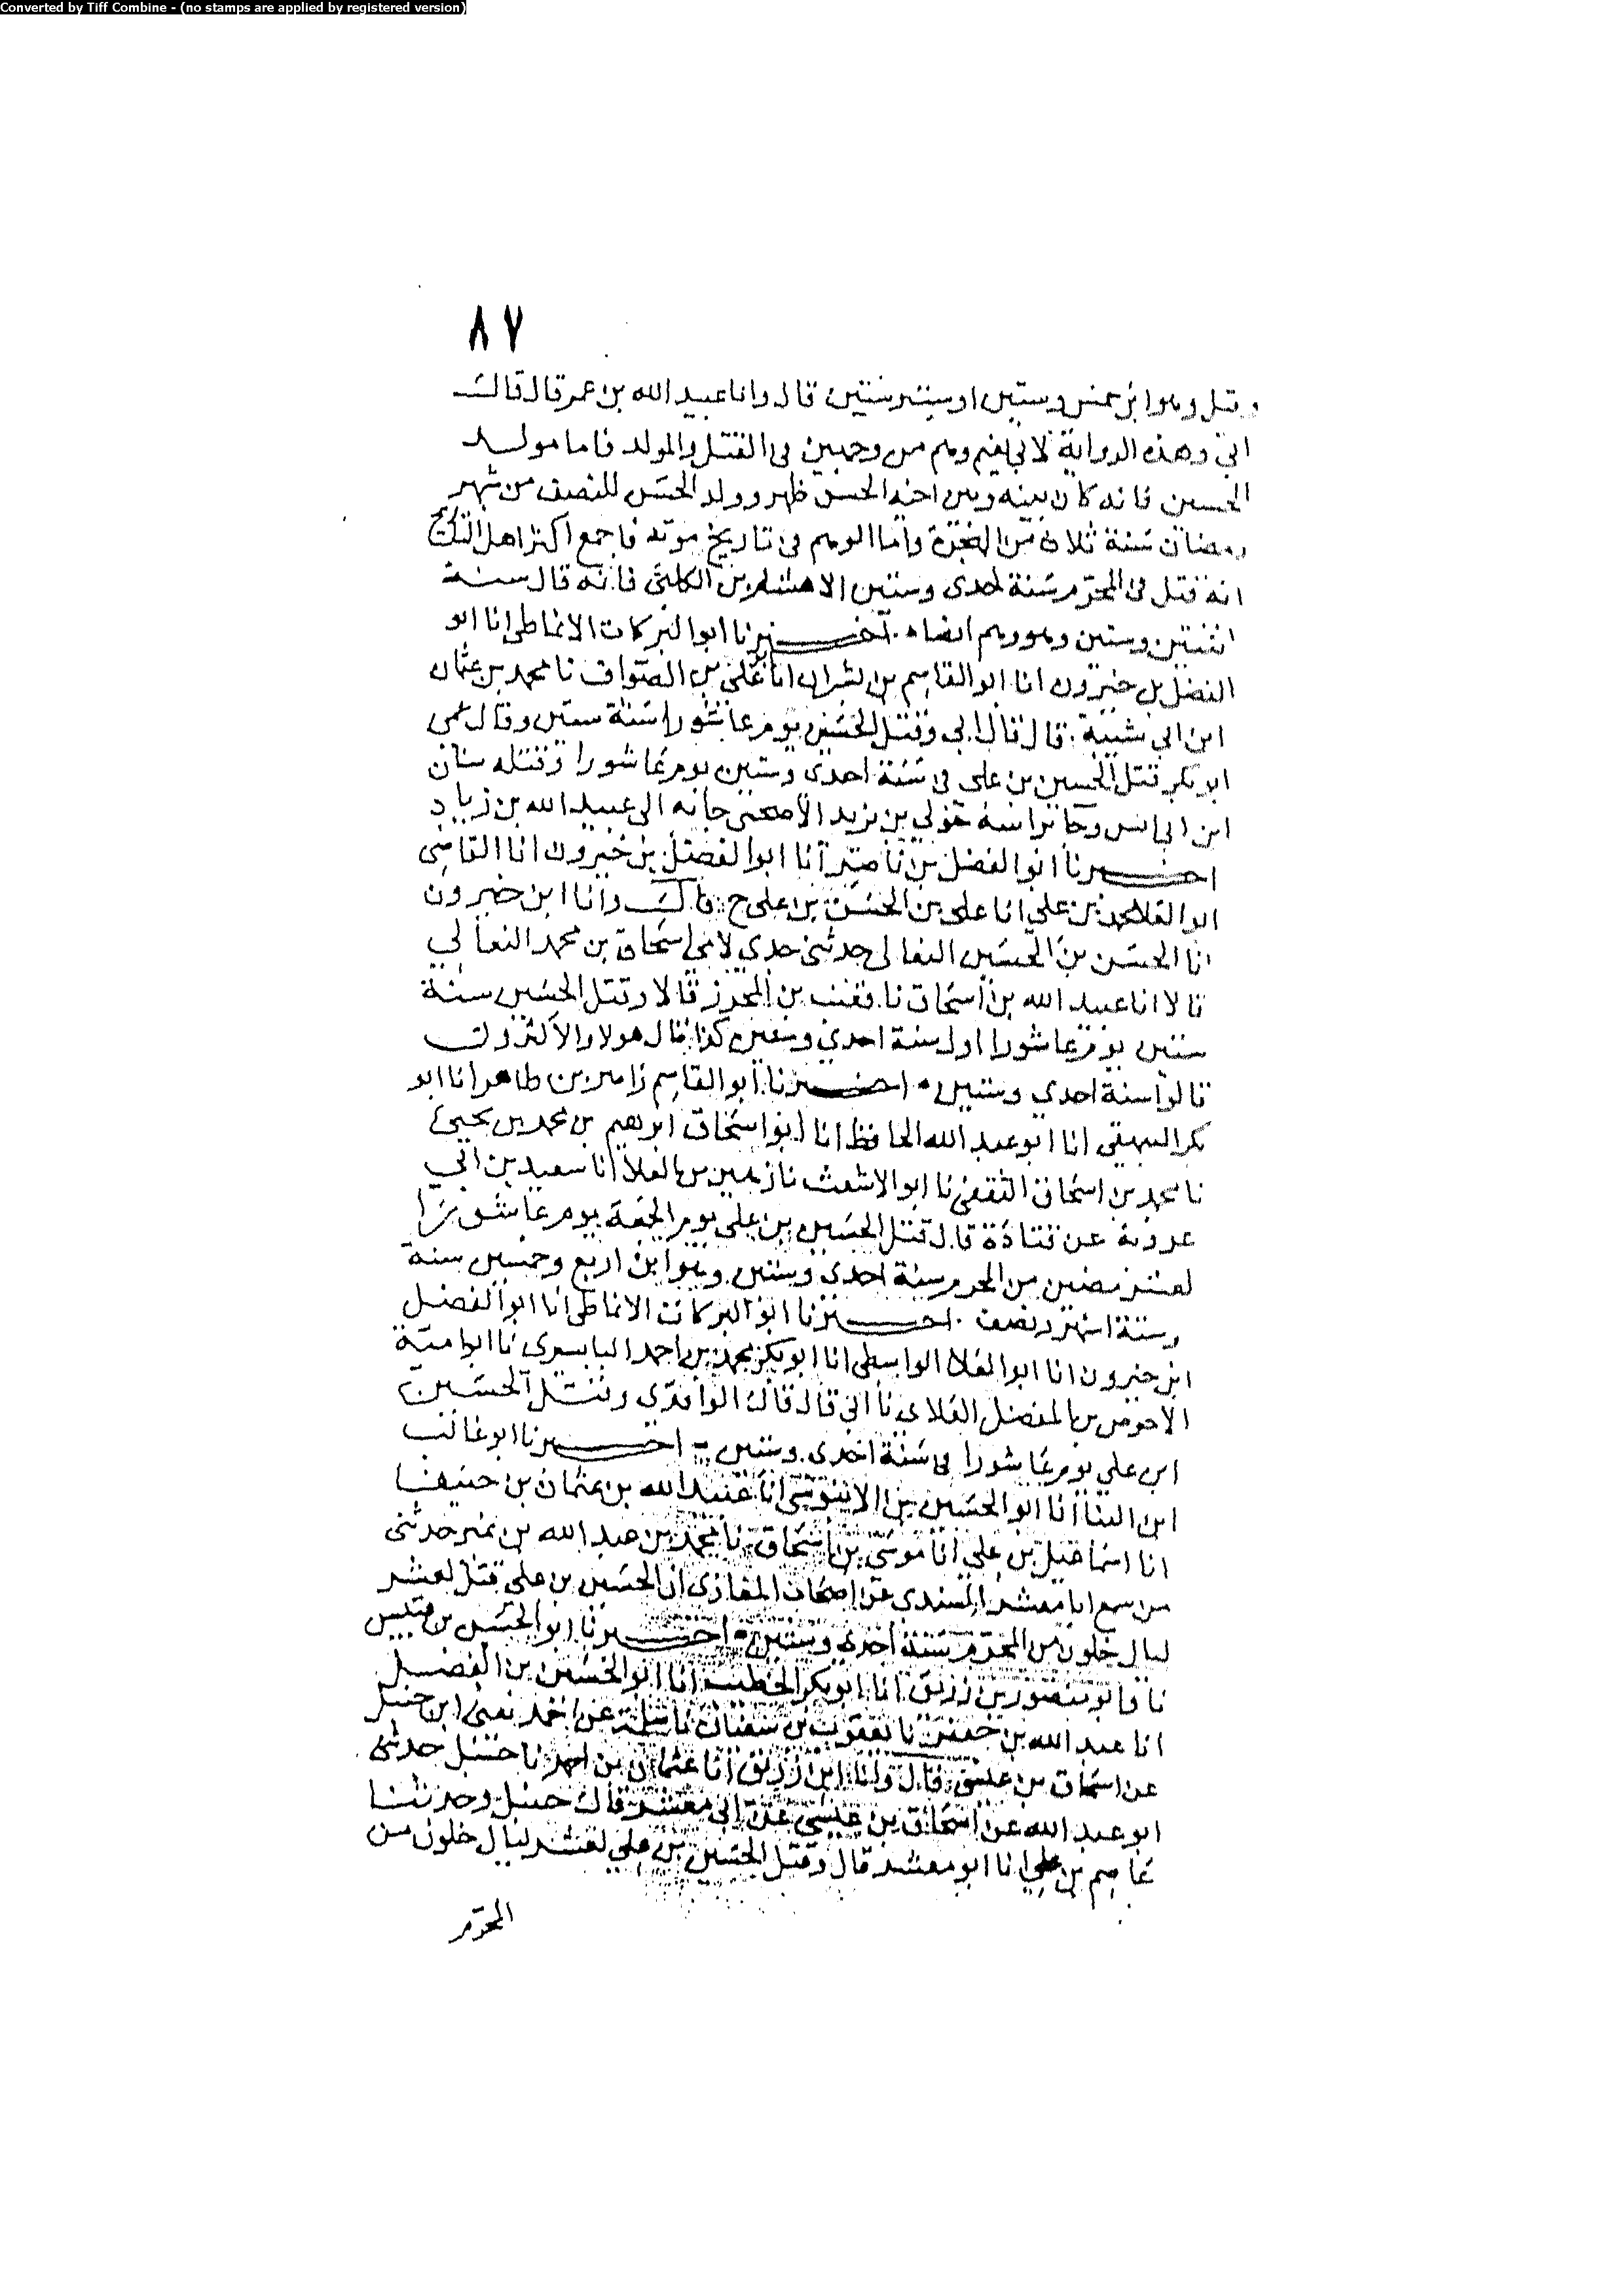 Converted by Tiff Combine - (no stamps are applied by registered version)
٨٧
وقتل وهو ابن خمس وستين او ست وستين قال وانا عبيد الله بن عمر قال قال
ابي وهذه الرواية لابي نعيم وهم من وجهين في القتل والمولد فاما مولد
الحسين فانه كان بينه وبين اخيه الحسن طهر وولد الحسن للنصف من شهر
رمضان سنة ثلاث من الهجرة واما الوهم في تاريخ موته فاجمع اكثر اهل التاريخ
انه قتل في المحرم سنة احدى وستين الا هشام بن الكلبي فانه قال سنة
اثنتين وستين وهو وهم ايضا اخبرنا ابو البركات الانماطي انا ابو
الفضل بن خيرون انا ابو القاسم بن بشران انا ابو علي بن الصواف نا محمد بن عثمان
ابن ابي شيبة قال قال ابي وقتل الحسين يوم عاشورا سنة ستين وقال عمي
ابو بكر قتل الحسين بن علي في سنة احدى وستين يوم عاشورا وقتله سنان
ابن ابي انس وجا براسه خولي بن يزيد الاصبحي جا به الى عبيد الله بن زياد
اخبرنا ابو الفضل بن ناصر انا ابو الفضل بن خيرون انا القاضي
ابو العلا محمد بن علي انا علي بن الحسن بن علي ح قال وانا ابن خيرون
انا الحسن بن الحسين النعالي حدثني جدي لامي اسحاق بن محمد النعالي
قالا انا عبيد الله بن اسحاق نا قعنب بن المحرز قالا وقتل الحسين سنة
ستين يوم عاشورا اول سنة احدى وستين كذا قال هولا والاكثرون
قالوا سنة احدي وستين اخبرنا ابو القاسم زاهر بن طاهر انا ابو
بكر البيهقي انا ابو عبد الله الحافظ انا ابو اسحاق ابرهيم بن محمد بن يحيى
نا محمد بن اسحاق الثقفي نا ابو الاشعث نا زهير بن العلا نا سعيد بن ابي
عروبة عن قتادة قال قتل الحسين بن علي يوم الجمعة يوم عاشورا
لعشر مضين من المحرم سنة احدى وستين وهو ابن اربع وخمسين سنة
وستة اشهر ونصف اخبرنا ابو البركات الانماطي انا ابو الفضل
ابن خيرون انا ابو العلا الواسطي انا ابو بكر محمد بن احمد البابسيري نا ابو امية
الاحوص بن المفضل الغلابي نا ابي قال قال الواقدي وقتل الحسين
ابن علي يوم عاشورا في سنة احدى وستين اخبرنا ابو غالب
ابن البنا انا ابو الحسين بن الابنوسي انا عبيد الله بن عثمان بن حنيفا
انا اسماعيل بن علي انا موسى بن اسحاق نا محمد بن عبد الله بن نمير حدثني
من سمع ابا معشر السندي عن اصحاب المغازي ان الحسين بن علي قتل لعشر
ليال خلون من المحرم سنة احدى وستين اخبرنا ابو الحسن بن قبيس
نا وابو منصور بن زريق انا ابو بكر الخطيب انا ابو الحسين بن الفضل
انا عبد الله بن جعفر نا يعقوب بن سفيان نا سلمة عن احمد يعني ابن حنبل
عن اسحاق بن عيسى قال وانا ابن رزيق انا عثمان بن احمد نا حنبل حدثني
ابو عبد الله عن اسحاق بن عيسى عن ابي معشر قال حنبل وحدثنا
عاصم بن علي انا ابو معشر قال وقتل الحسين بن علي لعشر ليال خلون من
المحرم